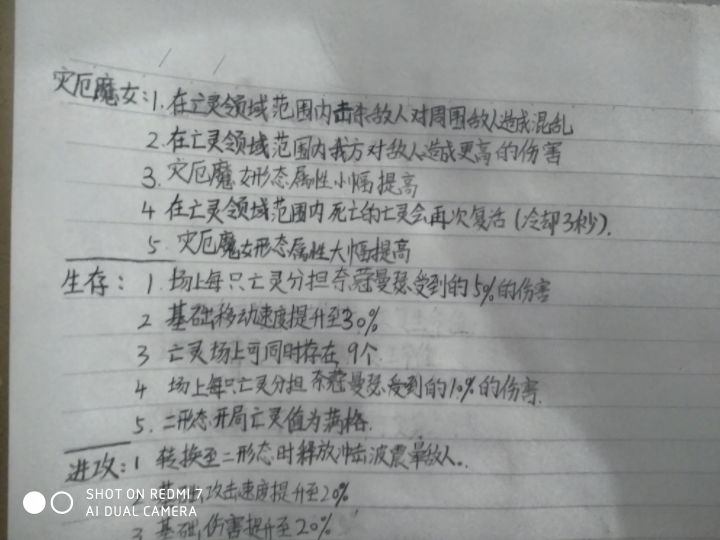 灾厄魔女:1.在亡灵领域范围内击杀敌人对周围敌人造成混乱
2.在亡灵领域范围内我方对敌人造成更高的伤害
3.灾厄魔女形态属性小幅提高
4 在亡灵领域范围内死亡的亡灵会再次复活(冷却3秒).
5.灾厄魔女形态属性大幅提高
生存:1.场上每只亡灵分担奈蔻曼瑟受到的5%的伤害
2 基础移动速度提升至30%
3 亡灵场上可同时存在9个
4 场上每只亡灵分担奈蔻曼瑟受到的10%的伤害.
5.二形态开局亡灵值为满格.
进攻:1 转换至二形态时释放冲击波震晕敌人.
2 基础攻击速度提升至20%
SHOT ON REDMI 7
AI DUAL CAMERA
3 基础伤害提升至20%